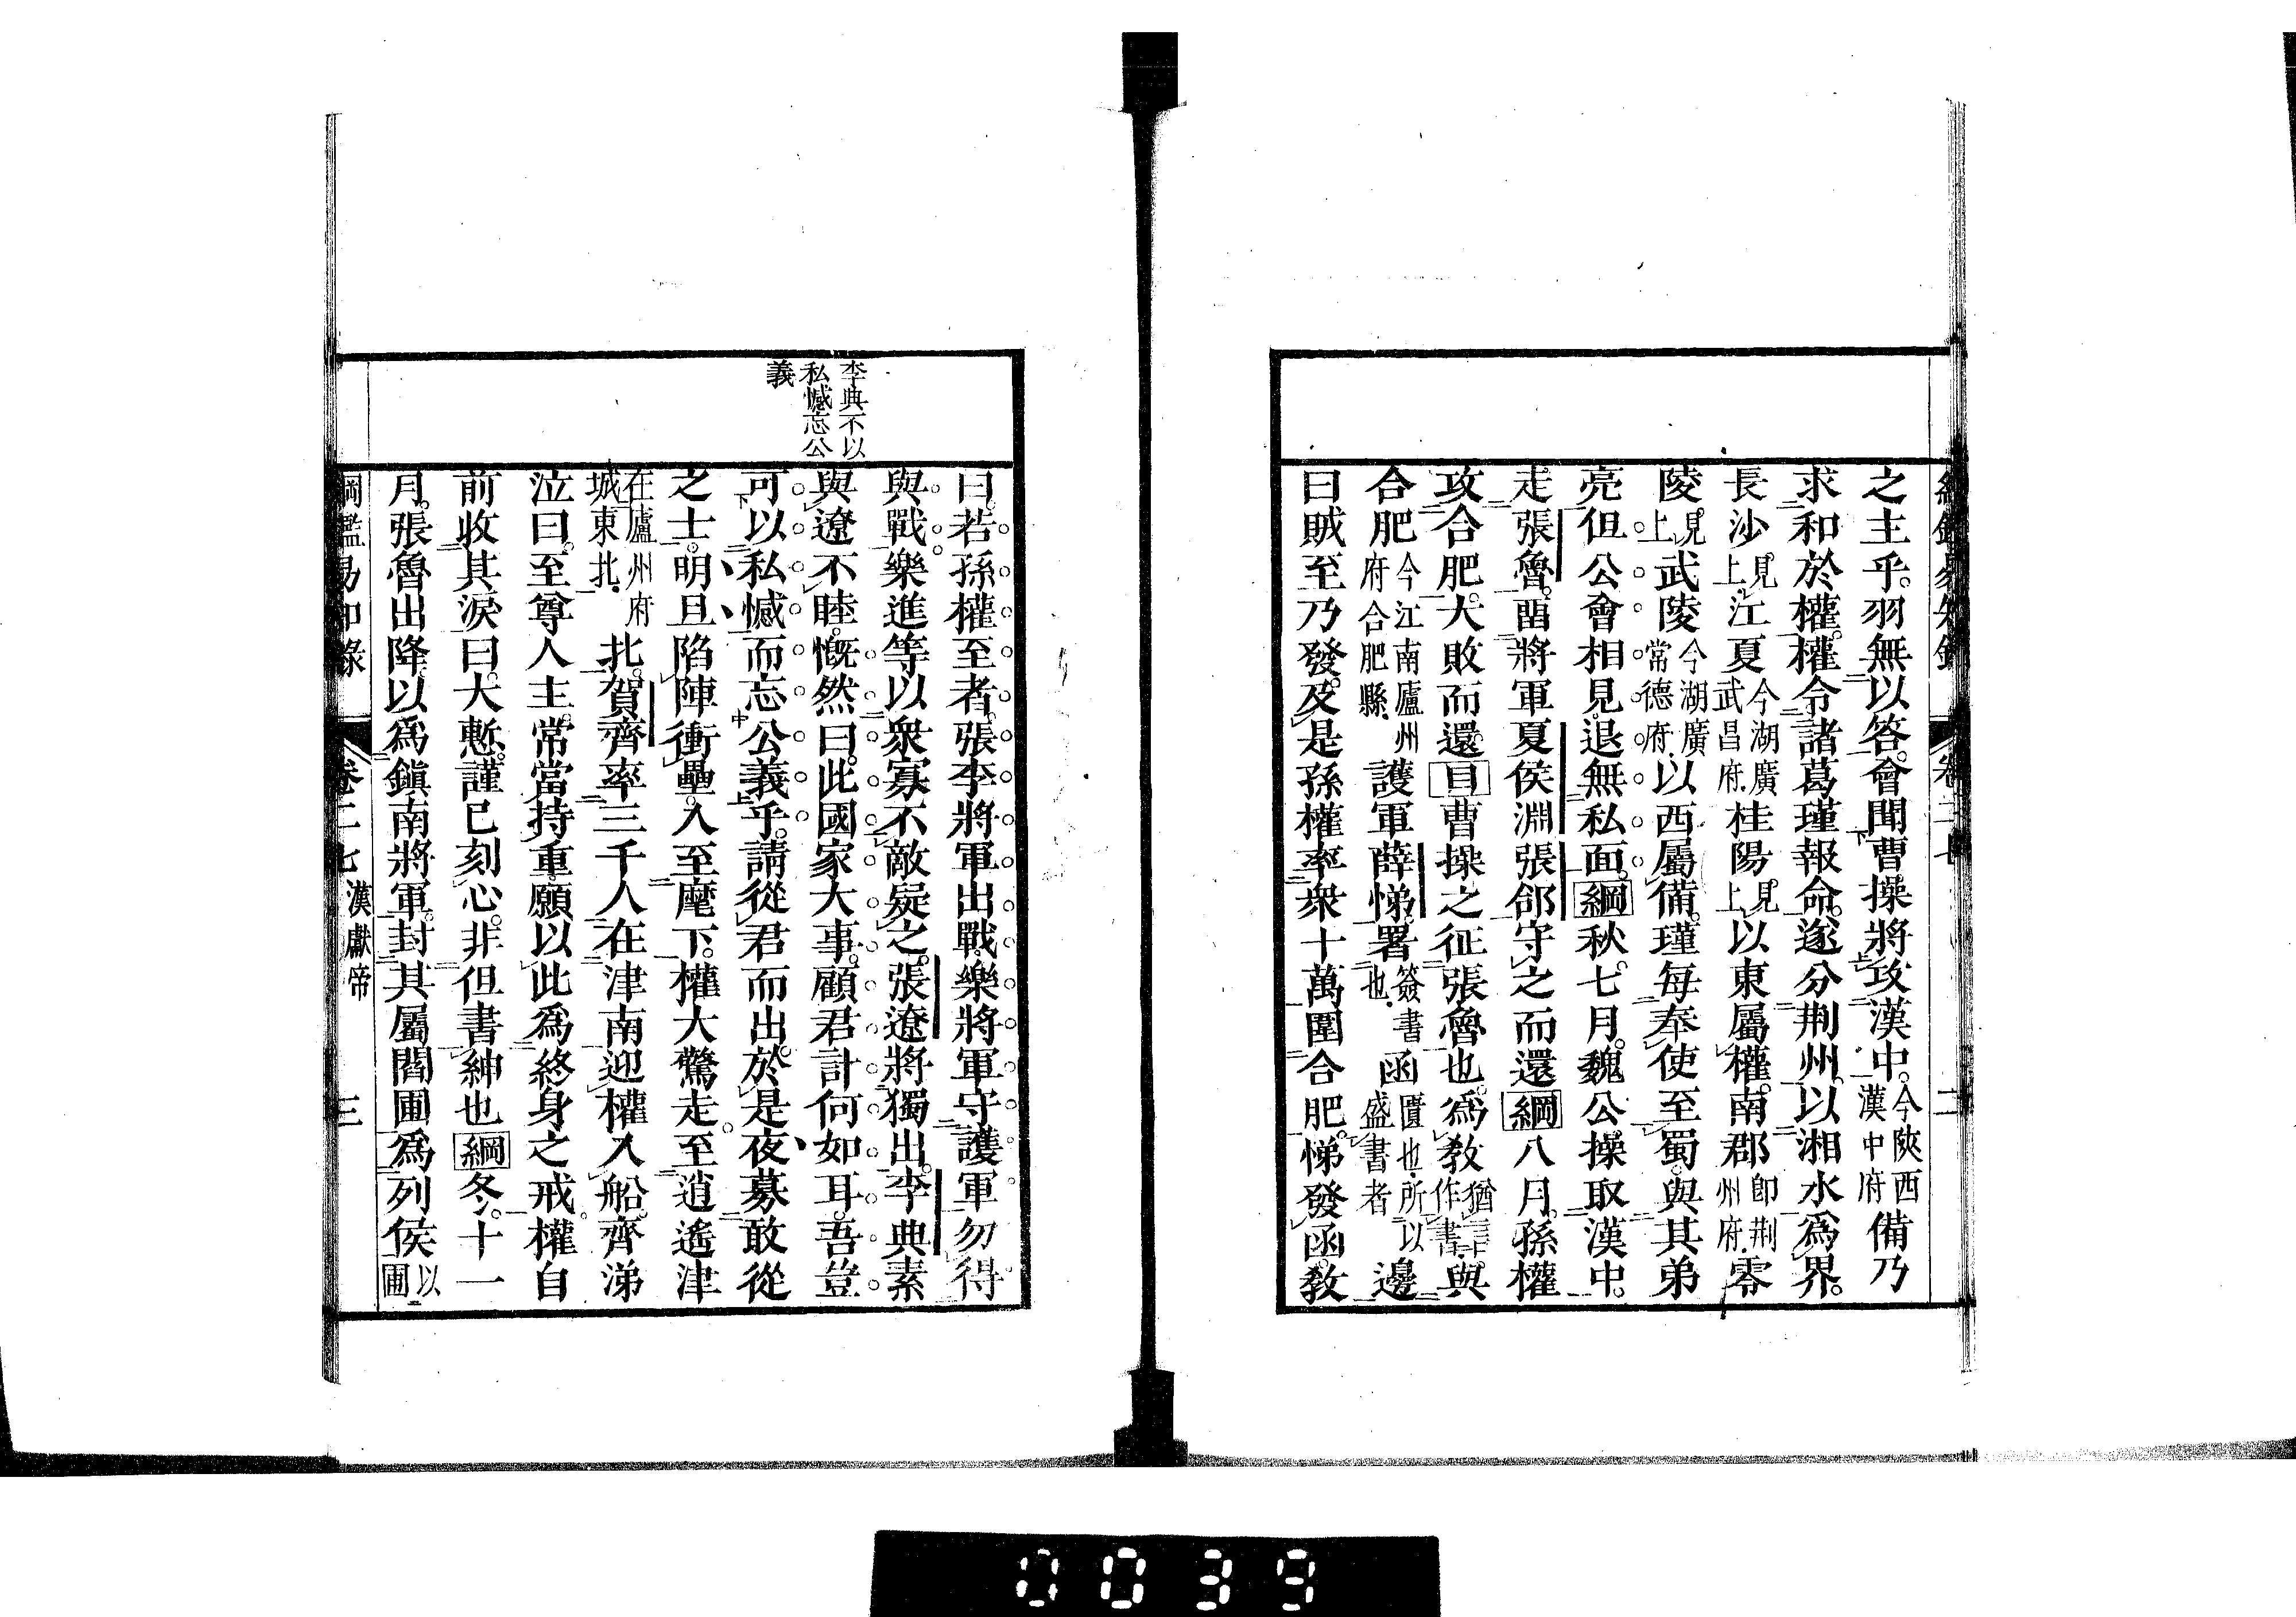 之主乎。羽無以答。會聞曹操將攻漢中。今陝西漢中府備乃
求和於權。權令諸葛瑾報命。遂分荆州。以湘水爲界。
長沙。見上。江夏今湖廣武昌府。桂陽。見上以東屬權。南郡卽荆州府。零
陵。見上武陵今湖廣常德府。以西屬備。瑾每奉使至蜀。與其弟
亮但公會相見。退無私面。綱秋。七月。魏公操取漢中。
走張魯。留將軍夏侯淵張郃守之而還綱八月。孫權
攻合肥。大敗而還。目曹操之征張魯也。爲教猶言作書。與
合肥今江南廬州府合肥縣。護軍薛悌。署簽書也。函匱也所以盛書者邊
曰賊至乃發。及是孫權率衆十萬圍合肥。悌發函。教
綱鑑易知錄 卷二七 二
李典不以
私憾忘公
義
曰。若孫權至者。張李將軍出戰。樂將軍守。護軍勿得
與戰。樂進等。以衆寡不敵疑之。張遼將獨出。李典素
與遼不睦。慨然曰。此國家大事。顧君計何如耳。吾豈
可以私憾而忘公義乎。請從君而出。於是夜募敢從
之士。明旦陷陣。衝壘。入至麾下。權大驚走。至逍遙津
在廬州府城東北。北。賀齊率三千人在津南迎權入船。齊涕
泣曰。至尊人主。常當持重。願以此爲終身之戒。權自
前收其淚曰。大慙。謹已刻心。非但書紳也綱冬。十一
月。張魯出降。以爲鎭南將軍。封其屬閻圃爲列侯以圃
綱鑑易知錄 卷二七 漢獻帝 三
0039